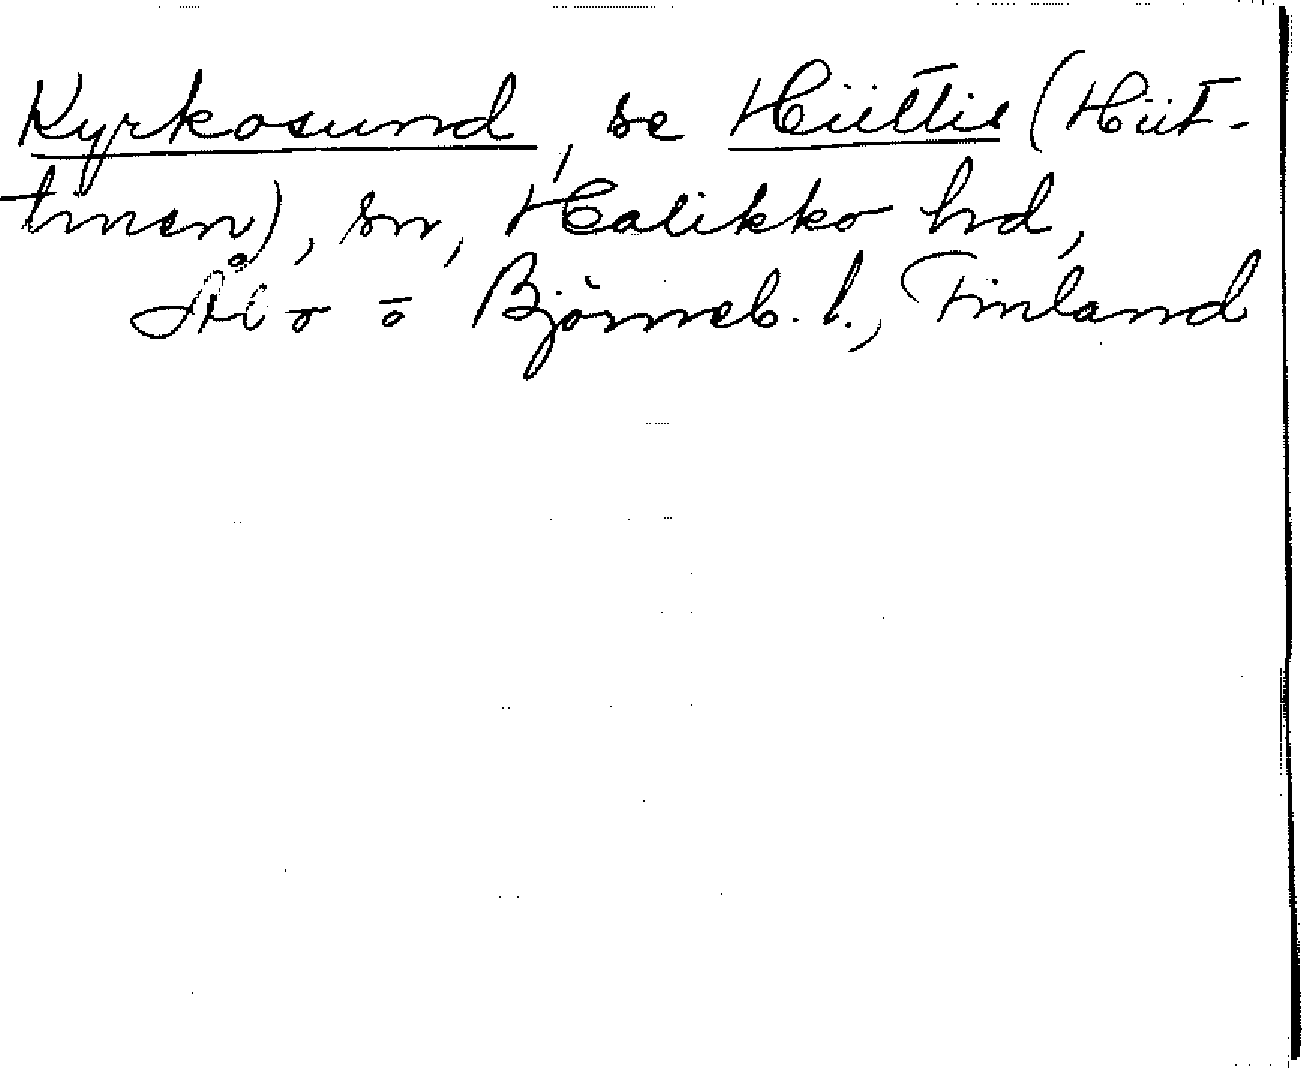 Kyrkosund, se Hiittis (Hiit-
tinen), sn, Halikko hd,
Åbo o Björneb. l., Finland